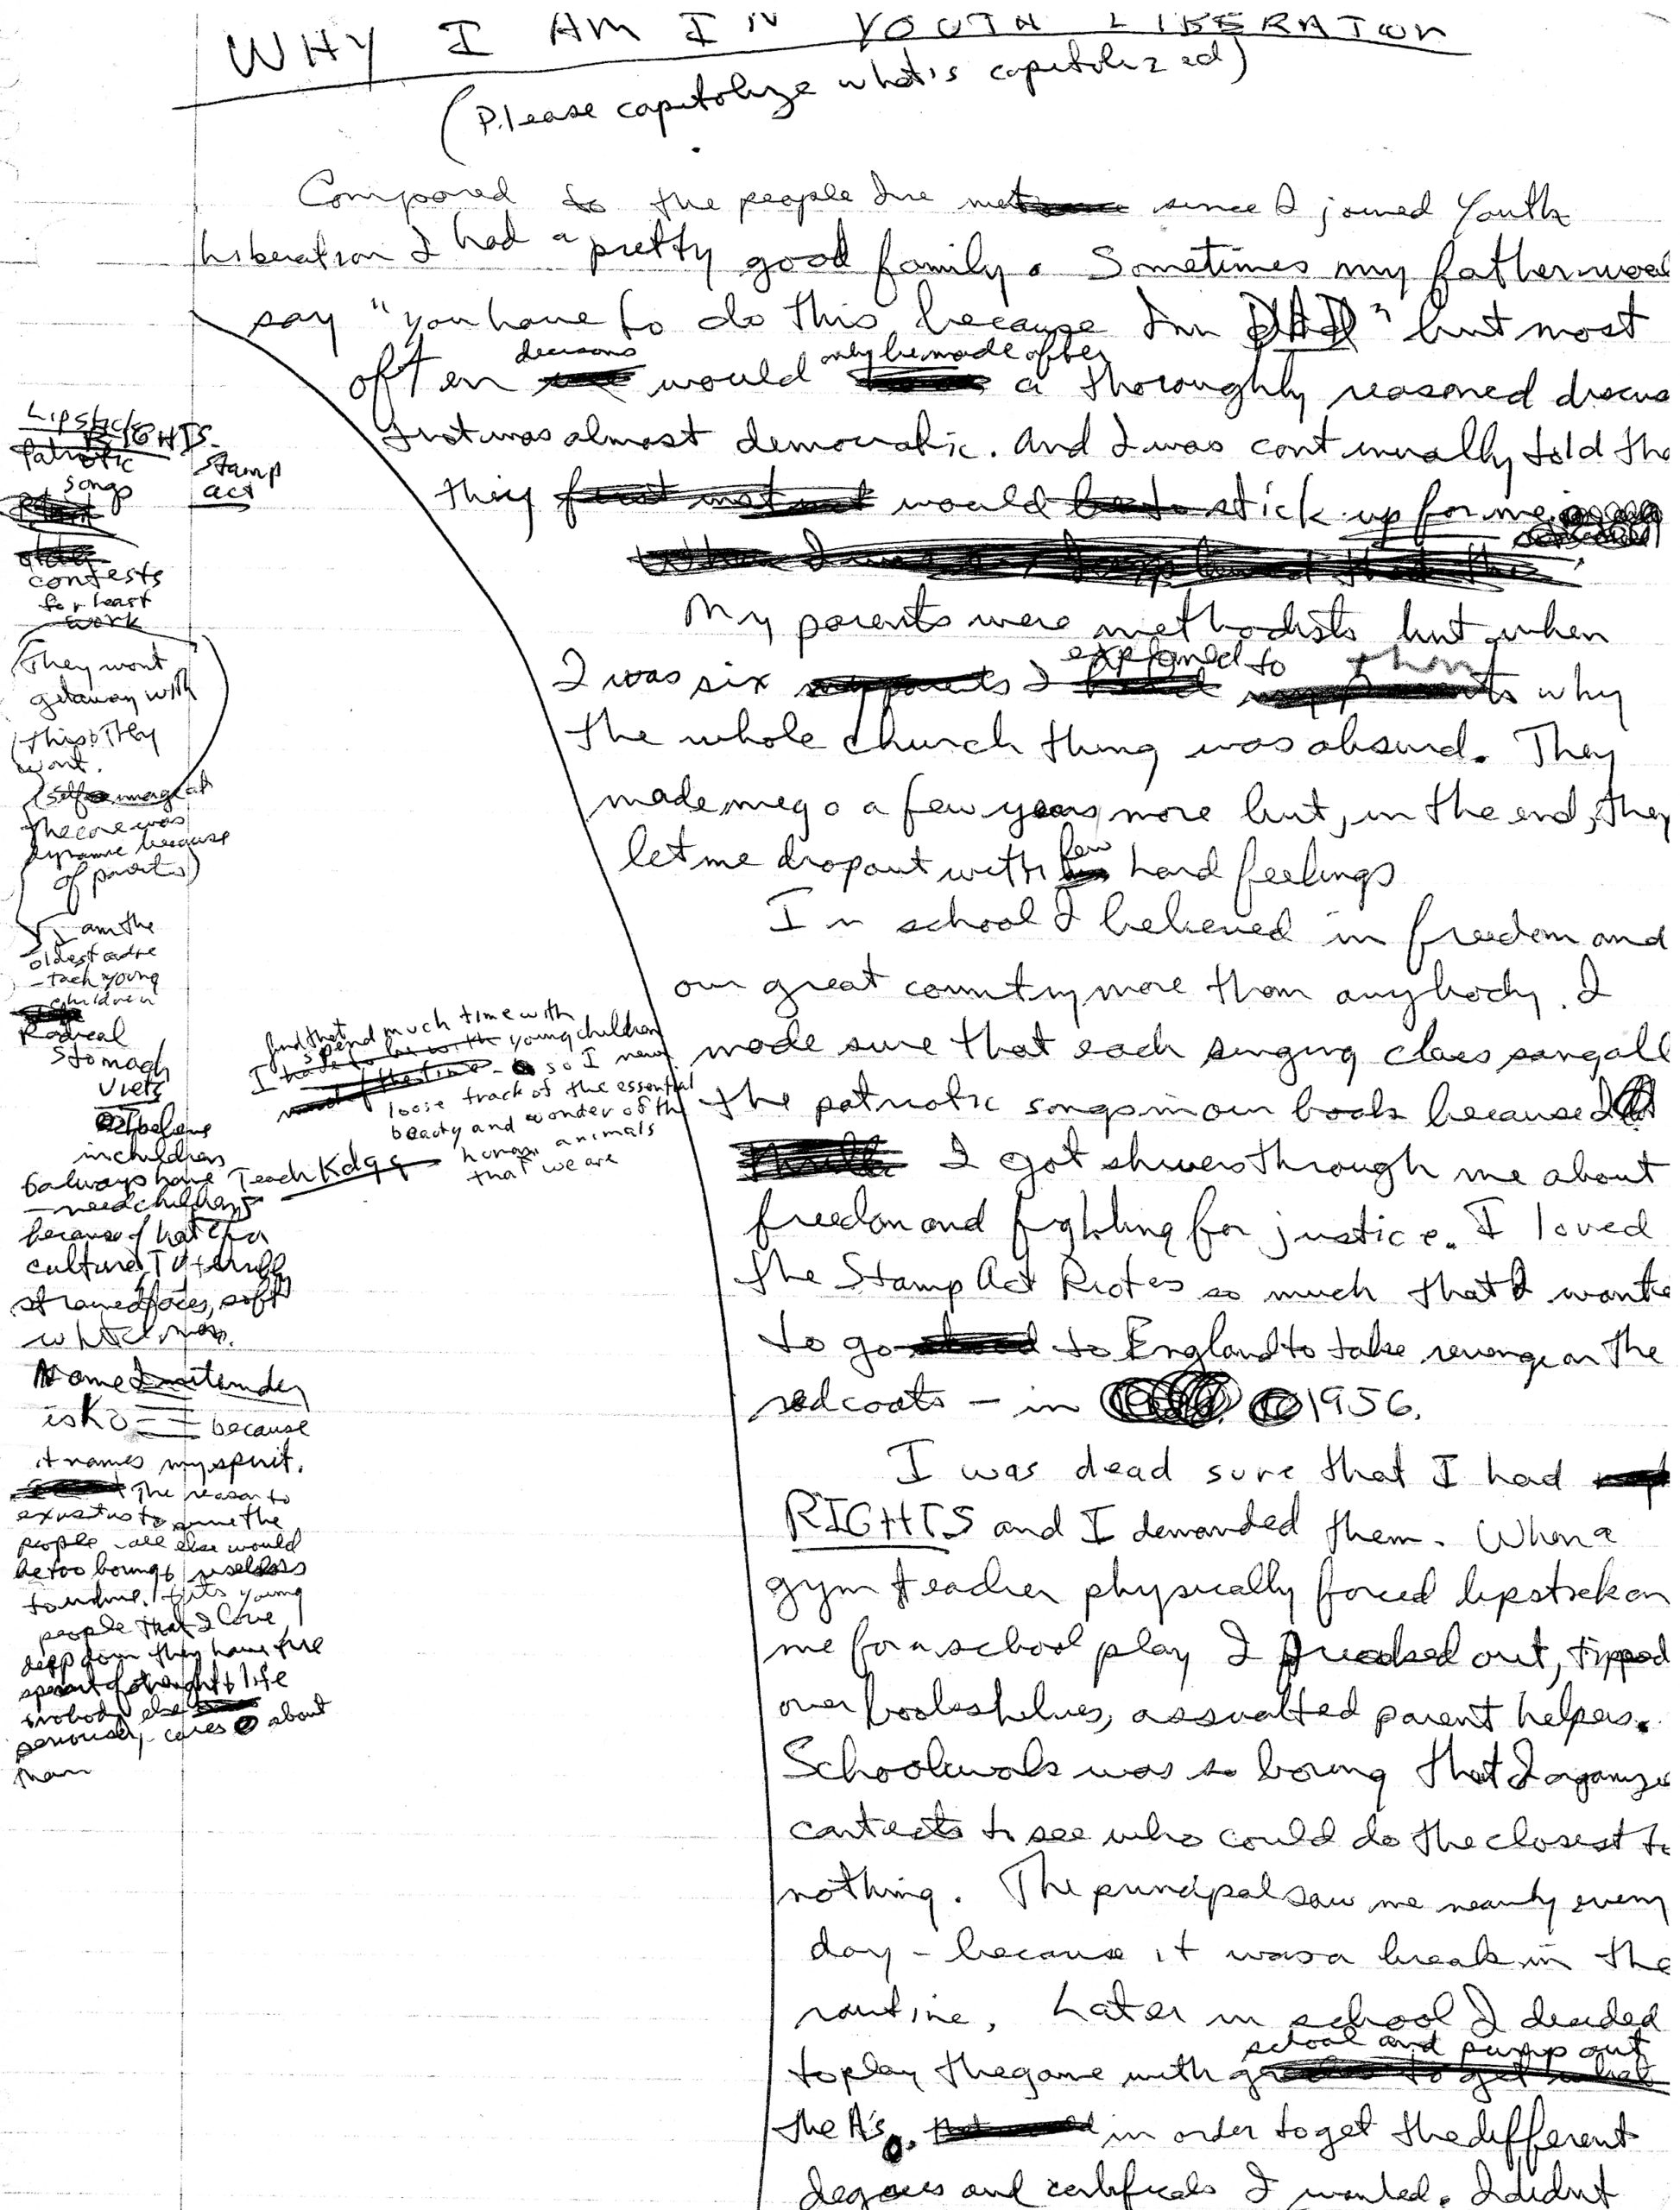 WHY I AM IN YOUTH LIBERATION
(Please capitolize what's capitolized)
Compared to the people I've met since I joined Youth
Liberation I had a pretty good family. Sometimes my father
say "you have to do this because I'm DAD" but most
often decisions would only be made after a thoroughly reasoned
that was almost democratic. And I was continually told
they would stick up for me
My parents were methodists but when
I was six I explained to them why
the whole church thing was absurd. They
made me go a few years more but, in the end, they
let me dropout with few hard feelings
In school I believed in freedom and
our great country more than anybody. I
made sure that each singing class sang all
the patriotic songs in our book because
I got shivers through me about
freedom and fighting for justice. I loved
the Stamp Act Riotes so much that I
to go to England to take revenge on the
redcoats - in 1956.
I was dead sure that I had
RIGHTS and I demanded them. When a
gym teacher physically forced lipstick on
me for a school play I freaked out, tipped
over bookshelves, assaulted parent helpers.
Schoolwork was so boring that I
contests to see who could do the closest to
nothing. The principal saw me nearly every
day - because it was a break in the
routine. Later in school I decided
to play the game with school and pump out
the A's. in order to get the different
degrees and certificats I wanted. I didnt
Lipstick
RIGHTS
Patriotic
songs
stamp
act
contests
for least
work
They wont
getaway with
this. They
wont.
The core was
dynamic because
of parents)
am the
oldest
- teach young
children
Radical
Stomach
Viets
I believe
in children
to always have
- need children
because of
culture, TV
soft
Teach Kdg
I find that spend much time with young children
so I never
loose track of the essential
beauty and wonder of the
human animals
that we are
Name
is because
it names my spirit.
The reason to
exist is to serve the
people - all else would
be too boring & useless
to endure. Its young
people that I love
deep down they have
spirit of thought & life
nobody else
seriously cares about
them